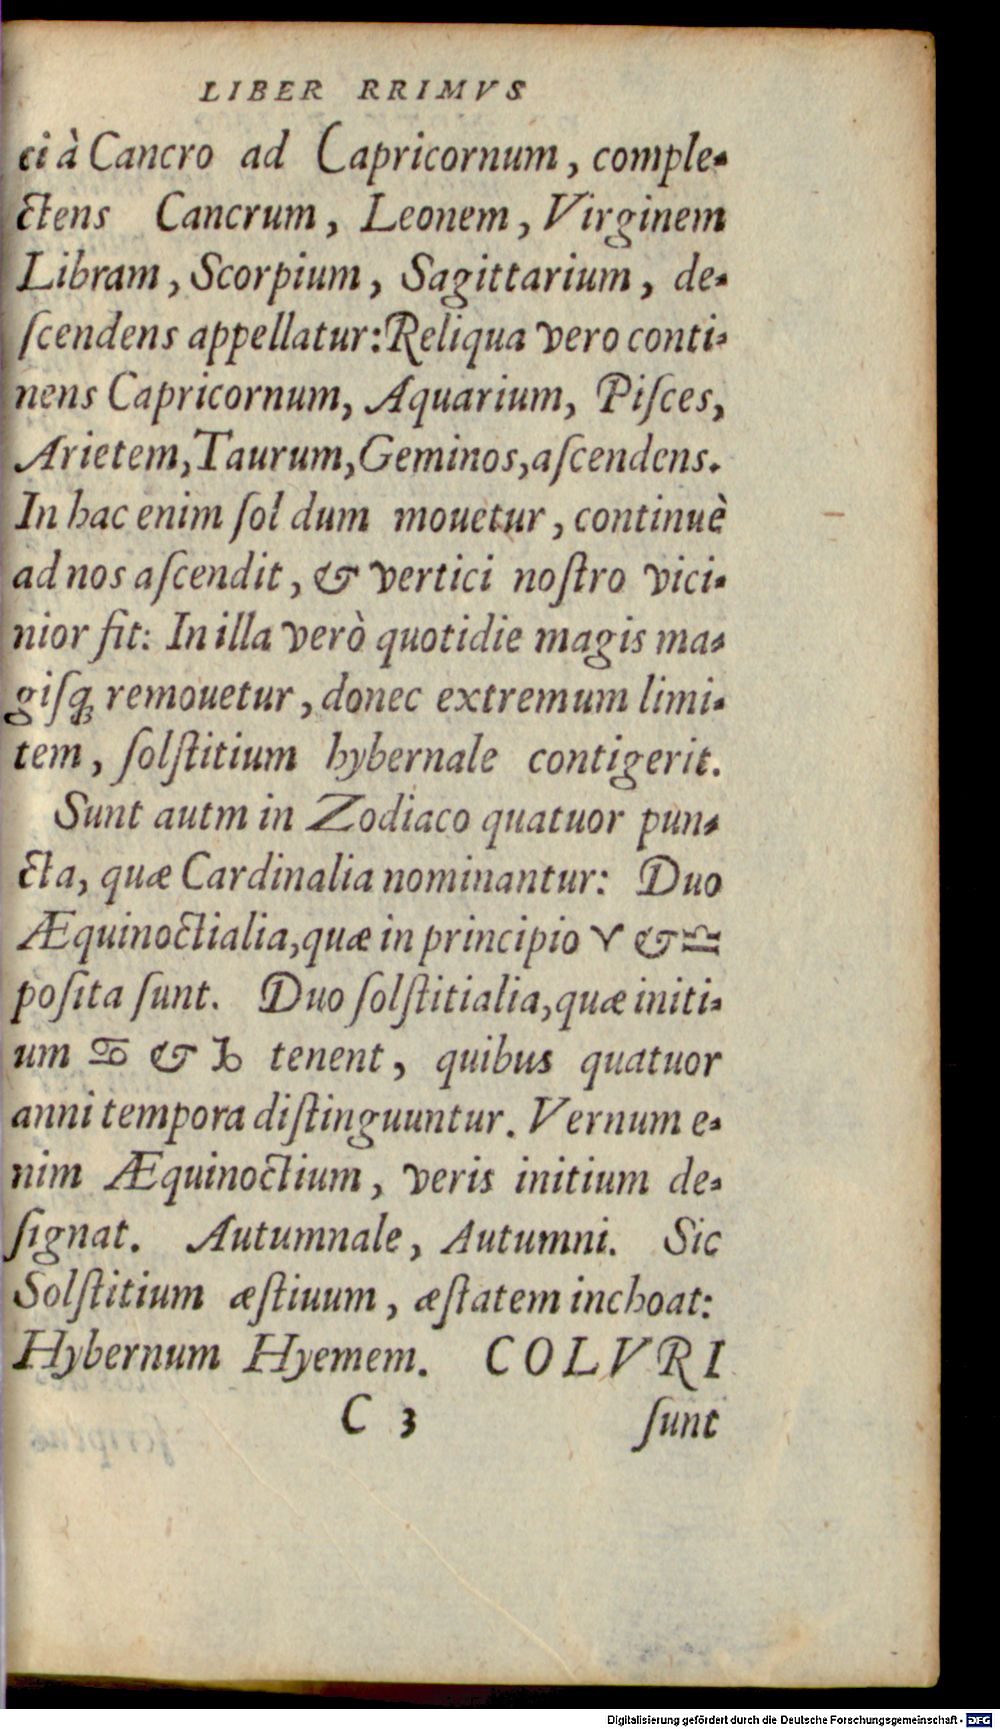 LIBER RRIMVS
ci à Cancro ad Capricornum, comple-
ctens Cancrum, Leonem, Virginem
Libram, Scorpium, Sagittarium, de-
ſcendens appellatur: Reliqua vero conti-
nens Capricornum, Aquarium, Piſces,
Arietem, Taurum, Geminos, aſcendens.
In hac enim ſol dum mouetur, continuè
ad nos aſcendit, & vertici noſtro vici-
nior fit: In illa verò quotidie magis ma-
giſq́; remouetur, donec extremum limi-
tem, ſolſtitium hybernale contigerit.
Sunt autm in Zodiaco quatuor pun-
cta, quæ Cardinalia nominantur: Duo
Æquinoctialia, quæ in principio ♈ & ♎
poſita ſunt. Duo ſolſtitialia, quæ initi-
um ♋ & ♑ tenent, quibus quatuor
anni tempora diſtinguuntur. Vernum e-
nim Æquinoctium, veris initium de-
ſignat. Autumnale, Autumni. Sic
Solſtitium æſtiuum, æſtatem inchoat:
Hybernum Hyemem. COLVRI
C 3 ſunt
Digitalisierung gefördert durch die Deutsche Forschungsgemeinschaft - DFG